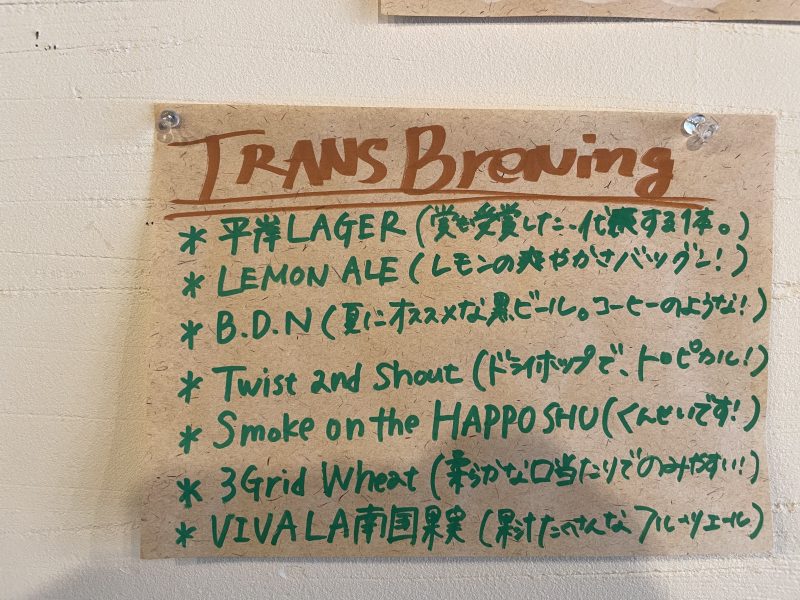 TRANS Brewing
* 平岸LAGER (賞を受賞した、代表する1本。)
* LEMON ALE (レモンの爽やかさバツグン!)
* B.D.N (夏にオススメな黒ビール。コーヒーのような!)
* Twist and Shout (ドライホップで、トロピカル!)
* Smoke on the HAPPOSHU (くんせいです!)
* 3Grid Wheat (柔らかな口当たりでのみやすい!)
* VIVA LA 南国果実 (果汁たくさんなフルーツエール)